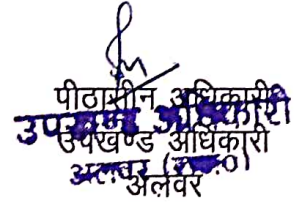 पीठासीन अधिकारी
उपखण्ड अधिकारी
उपखण्ड अधिकारी
अलवर (राज०)
अलवर